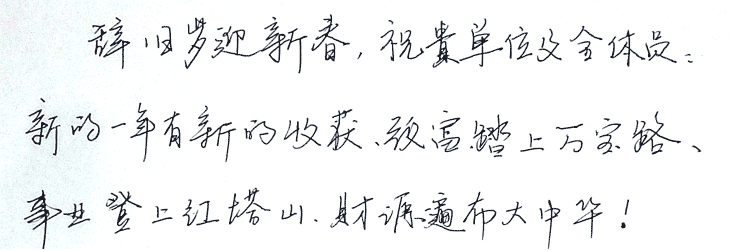 辞旧岁迎新春，祝贵单位及全体员：
新的一年有新的收获、致富踏上万宝路、
事业登上红塔山、财源遍布大中华！